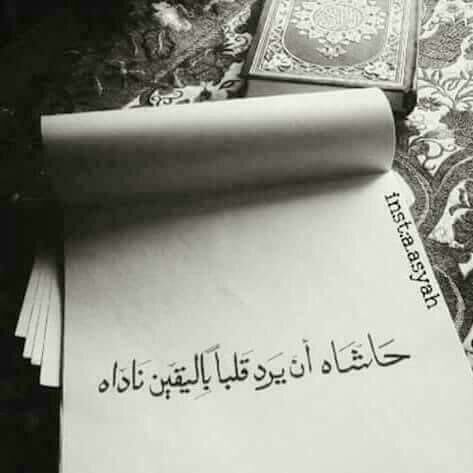 inst:a.asyah
حَاشَاه أن يَرد قَلباً بِاليَقين نَادَاه